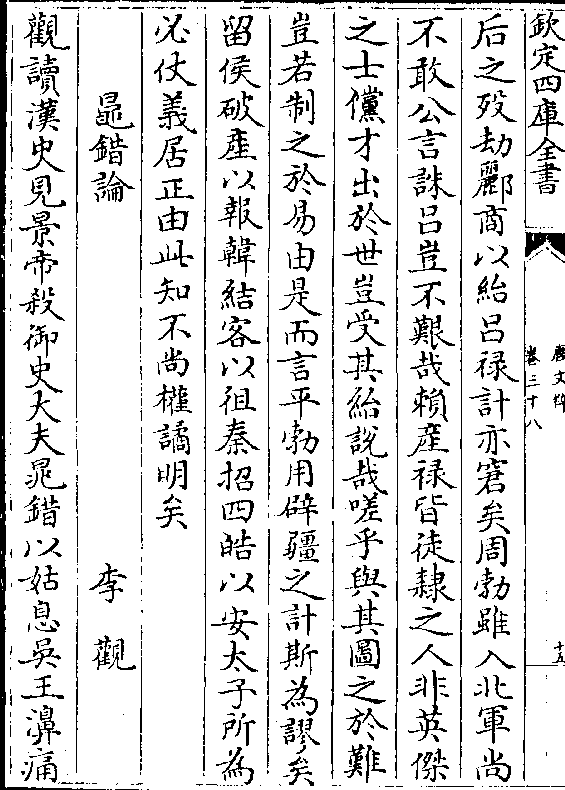 欽定四庫全書
唐文粹
卷三十八
十五
后之歿劫酈商以紿呂禄計亦窘矣周勃雖入北軍尚
不敢公言誅呂豈不艱哉頼産禄皆徒隸之人非英傑
之士儻才出於世豈受其紿說哉嗟乎與其圖之於難
豈若制之於易由是而言平勃用辟疆之計斯為謬矣
留侯破産以報韓結客以徂秦招四皓以安太子所為
必仗義居正由此知不尚權譎明矣
鼂錯論
李觀
觀讀漢史見景帝殺御史大夫鼂錯以姑息吳王濞痛